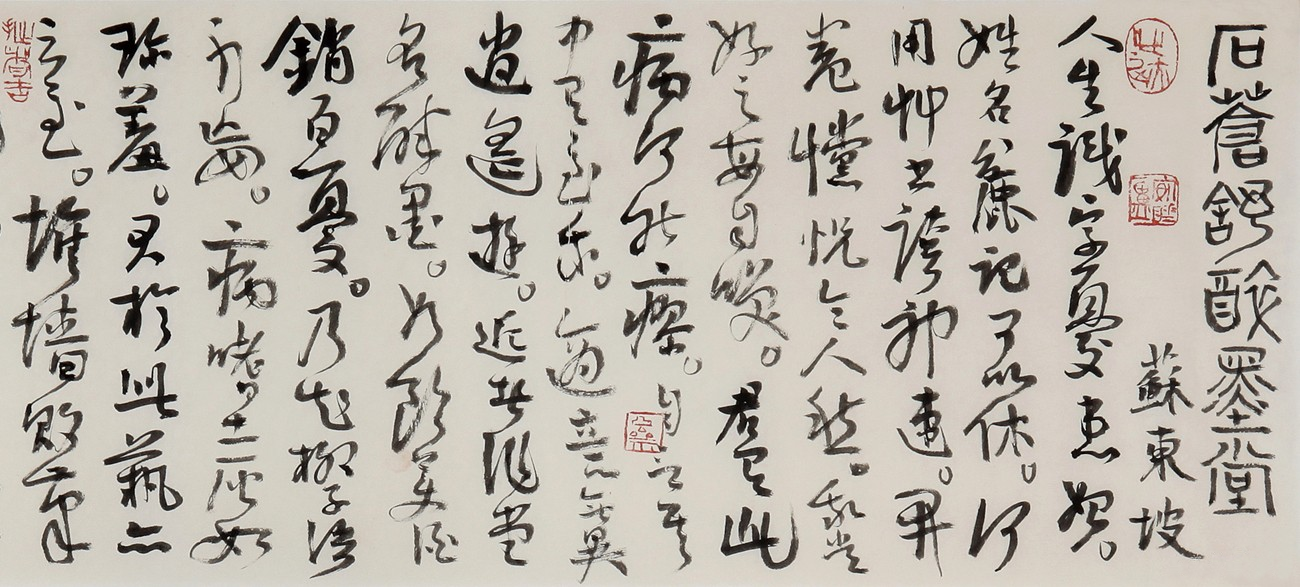 石蒼舒醉墨堂
蘇東坡
人生識字憂患始。
姓名麤記可以休。何
用艸書誇神速。開
卷戃怳令人愁。我嘗
好之每自笑。君有此
病何能瘳。自言其
中有至樂。適意無異
逍遙遊。近者作堂
名醉墨。如飲美酒
銷百憂。乃知柳子語
不妄。病嗜土炭如
珍羞。君於此藝亦
云至。堆牆敗筆